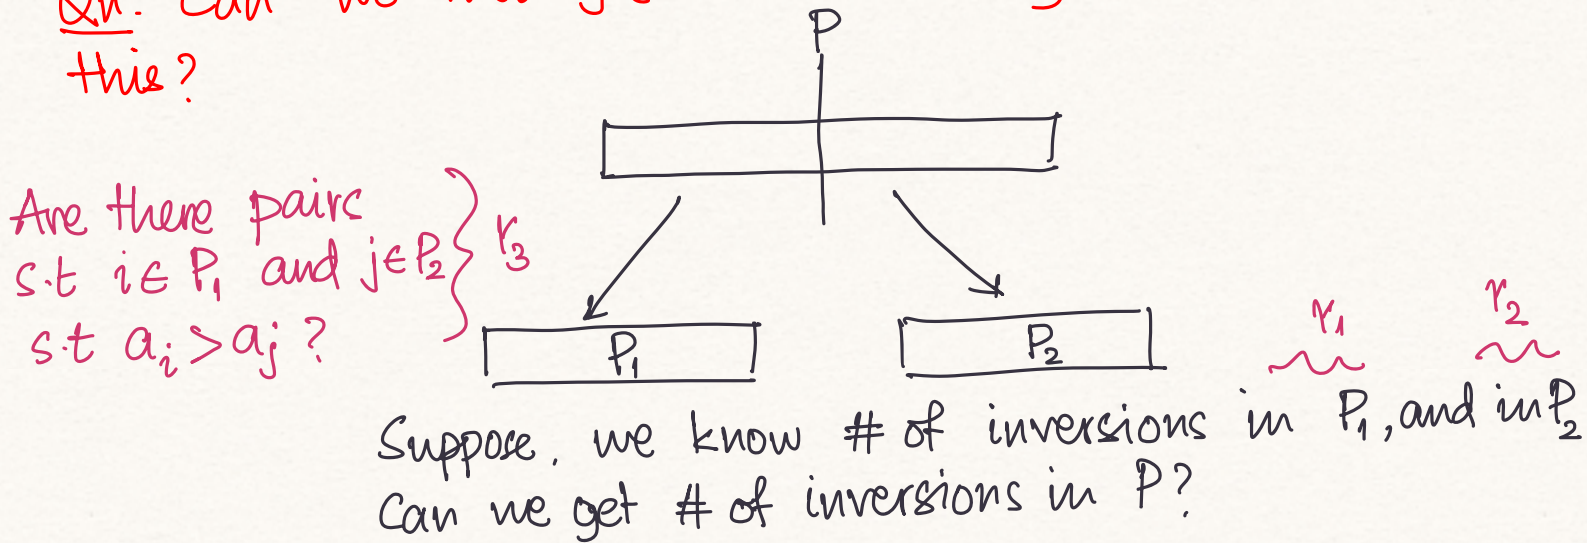 Qn: Can we
this?
P
Are there pairs
s.t i ∈ P₁ and j ∈ P₂ } r₃
s.t aᵢ > aⱼ ?
P₁
P₂
r₁ r₂
Suppose, we know # of inversions in P₁, and in P₂
Can we get # of inversions in P?